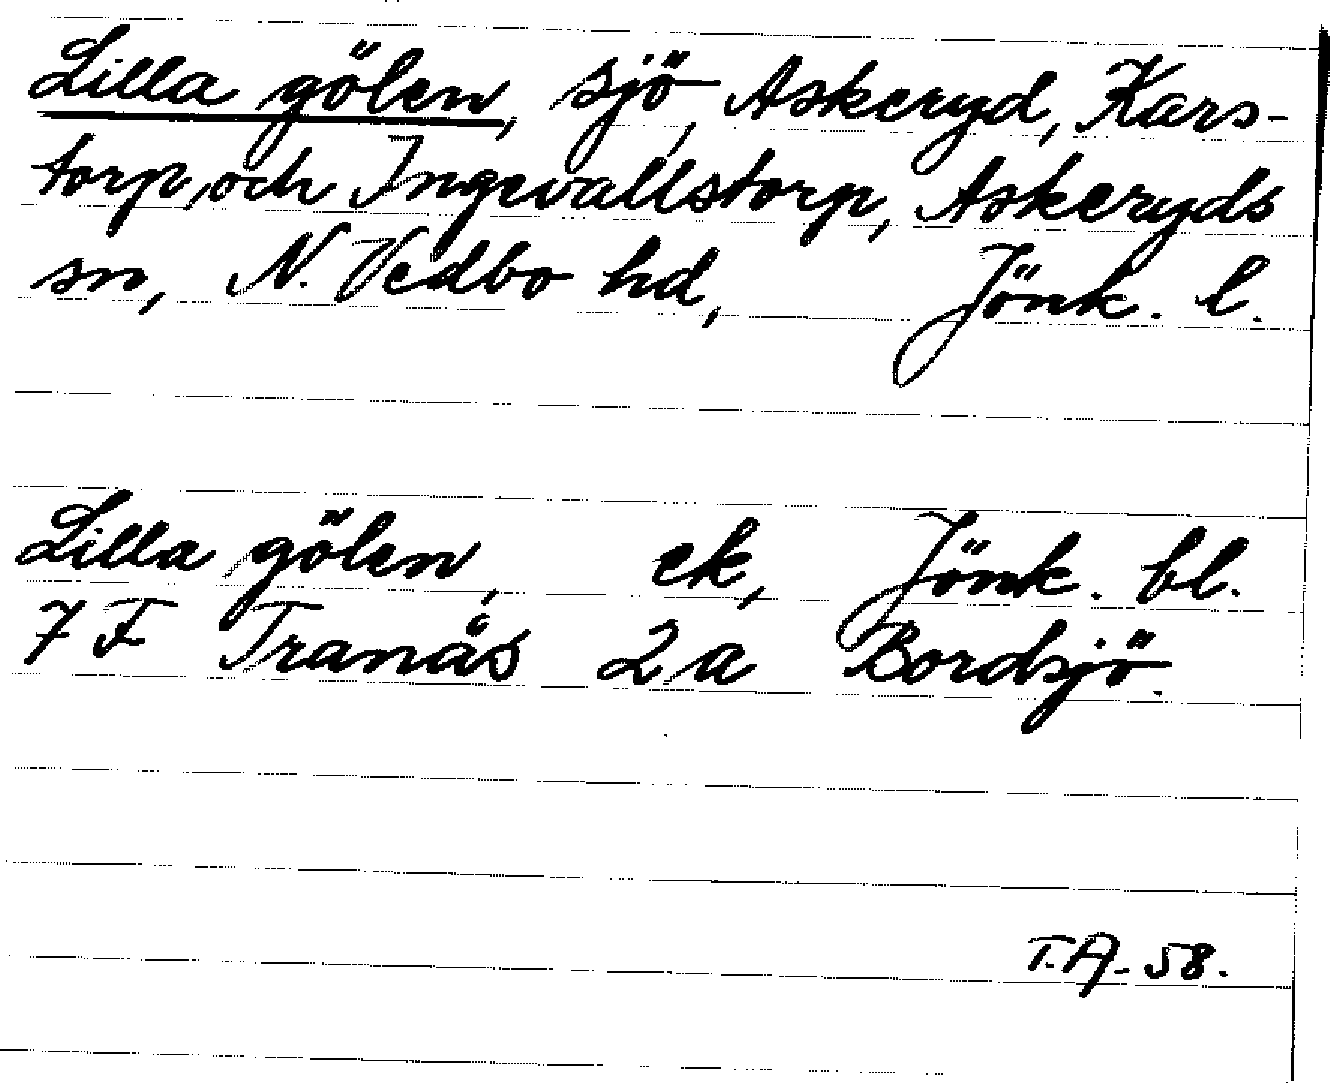 Lilla gölen, sjö, Askeryd, Kars-
torp, och Ingevallstorp, Askeryds
sn, N. Vedbo hd, Jönk. l.
Lilla gölen, ek, Jönk. bl.
7 F Tranås 2 a Bordsjö.
T.A. 58.